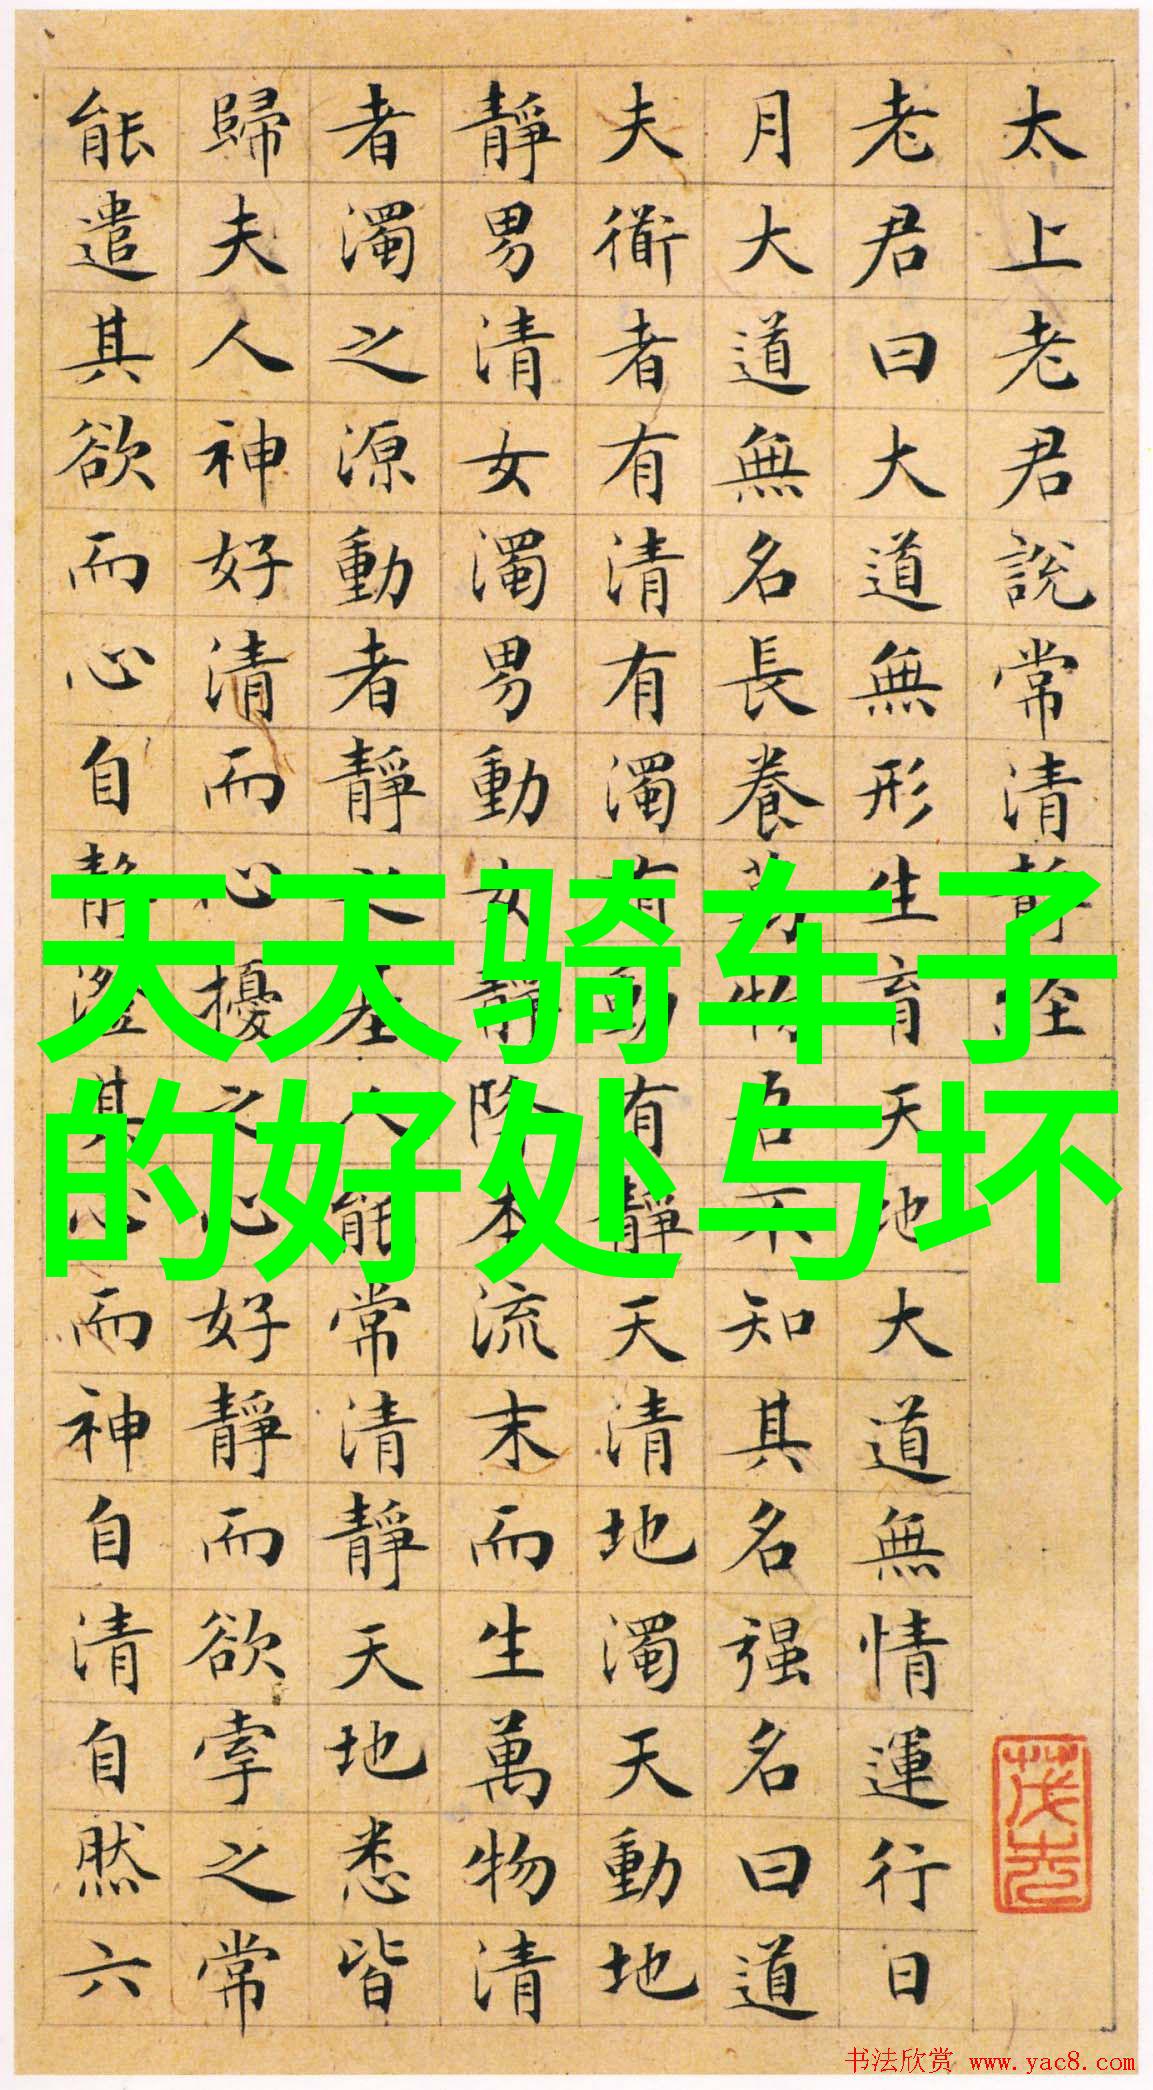 太上老君說常清靜經
老君曰大道無形生育天地大道無情運行日
月大道無名長養萬物吾不知其名强名曰道
夫衜者有清有濁有動有靜天清地濁天動地
靜男清女濁男動女靜降本流末而生萬物清
者濁之源動者靜之基人能常清靜天地悉皆
歸夫人神好清而心擾之心好靜而欲牽之常
能遣其欲而心自靜澄其心而神自清自然六
天天骑车子
的好处与坏
书法欣赏 www.yac8.com